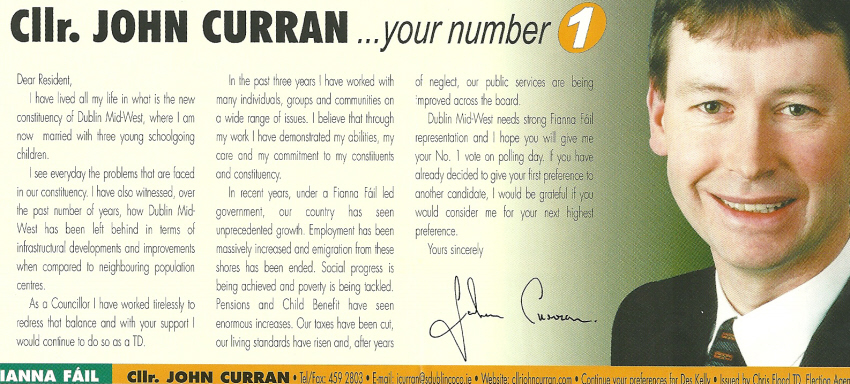 Cllr. JOHN CURRAN ...your number 1
Dear Resident,
I have lived all my life in what is the new
constituency of Dublin Mid-West, where I am
now married with three young schoolgoing
children.
I see everyday the problems that are faced
in our constituency. I have also witnessed, over
the past number of years, how Dublin Mid-
West has been left behind in terms of
infrastructural developments and improvements
when compared to neighbouring population
centres.
As a Councillor I have worked tirelessly to
redress that balance and with your support I
would continue to do so as a TD.
In the past three years I have worked with
many individuals, groups and communities on
a wide range of issues. I believe that through
my work I have demonstrated my abilities, my
care and my commitment to my constituents
and constituency.
In recent years, under a Fianna Fáil led
government, our country has seen
unprecedented growth. Employment has been
massively increased and emigration from these
shores has been ended. Social progress is
being achieved and poverty is being tackled.
Pensions and Child Benefit have seen
enormous increases. Our taxes have been cut,
our living standards have risen and, after years
of neglect, our public services are being
improved across the board.
Dublin Mid-West needs strong Fianna Fáil
representation and I hope you will give me
your No. 1 vote on polling day. If you have
already decided to give your first preference to
another candidate, I would be grateful if you
would consider me for your next highest
preference.
Yours sincerely
John Curran.
IANNA FÁIL Cllr. JOHN CURRAN • Tel/Fax: 459 2803 • E-mail: jcurran@sdublincoco.ie • Website: cllrjohncurran.com • Continue your preferences for Des Kelly • Issued by Chris Flood TD, Election Agen